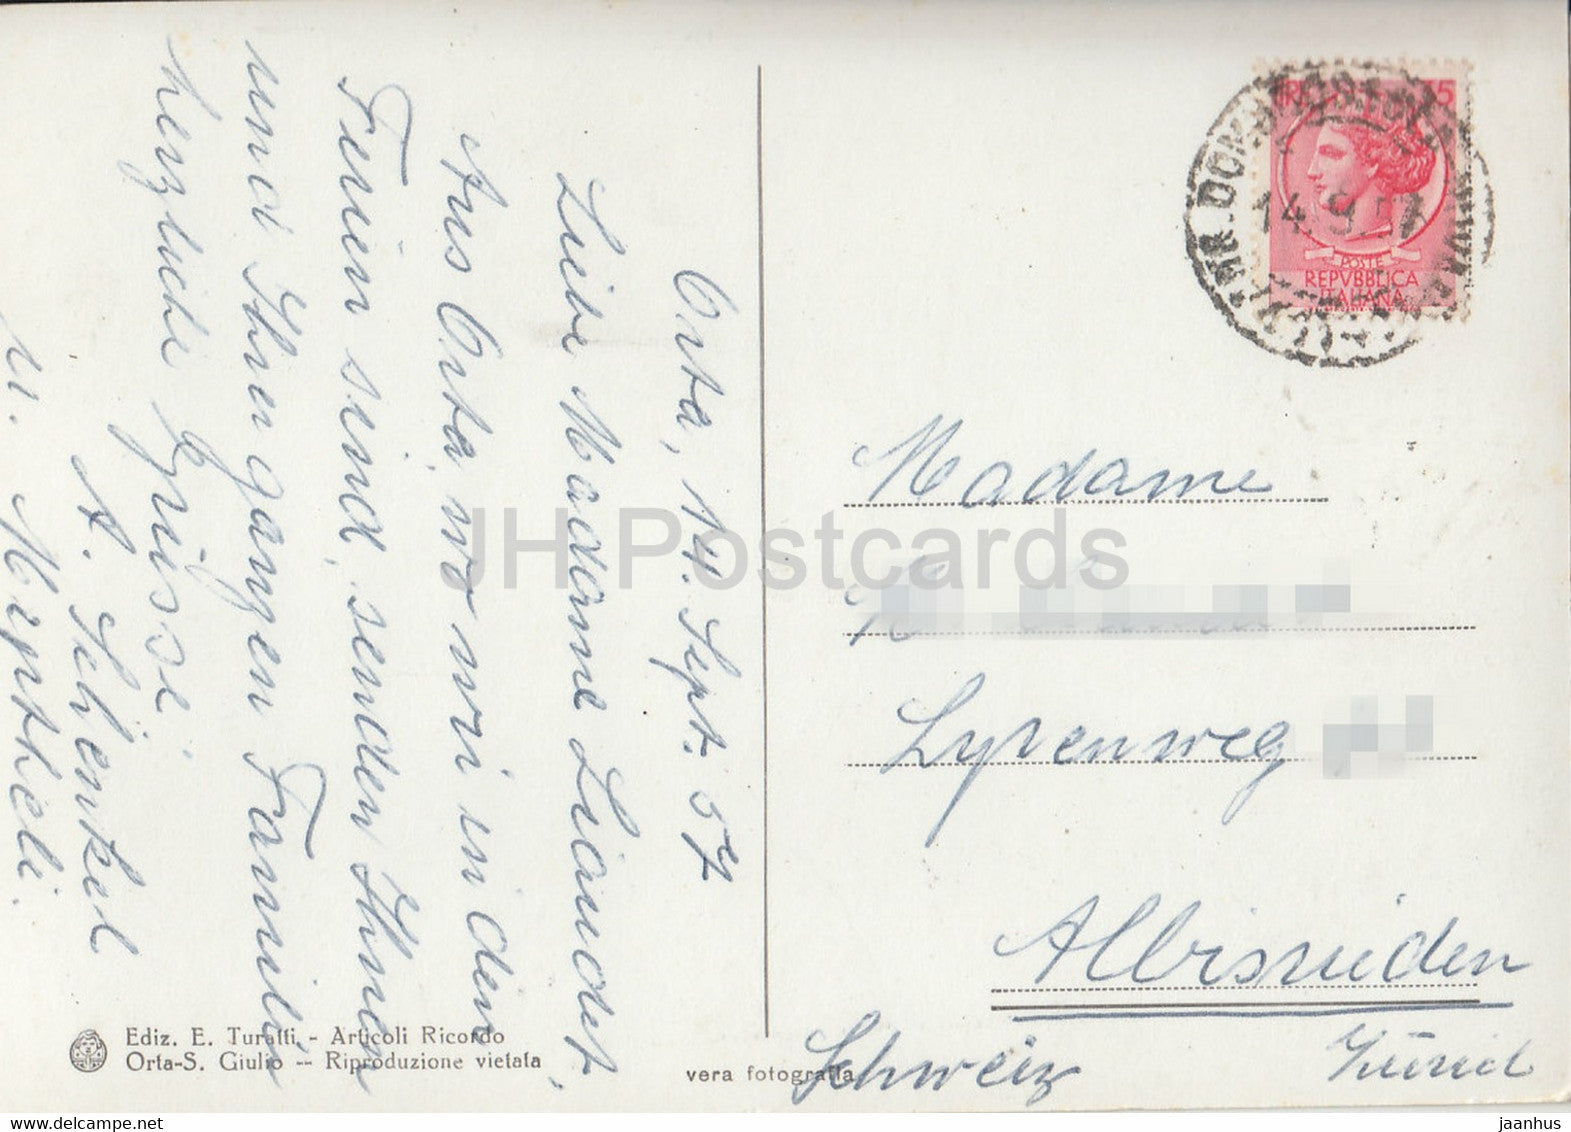 Orta, 14. Sept. 57
Liebe Madame Liaudet,
Aus Orta, wo wir in den
Ferien sind, senden Ihnen
und Ihrer ganzen Familie
herzliche Grüsse
A. Schenkel
u. Myrtheli.
REPVBBLICA
ITALIANA
POSTE
14.9.57
Madame
Lyrenweg
Albisrieden
Schweiz Zürich
Ediz. E. Turatti. - Articoli Ricordo
Orta-S. Giulio -- Riproduzione vietata
vera fotografia
JH Postcards
delcampe.net
jaanhus